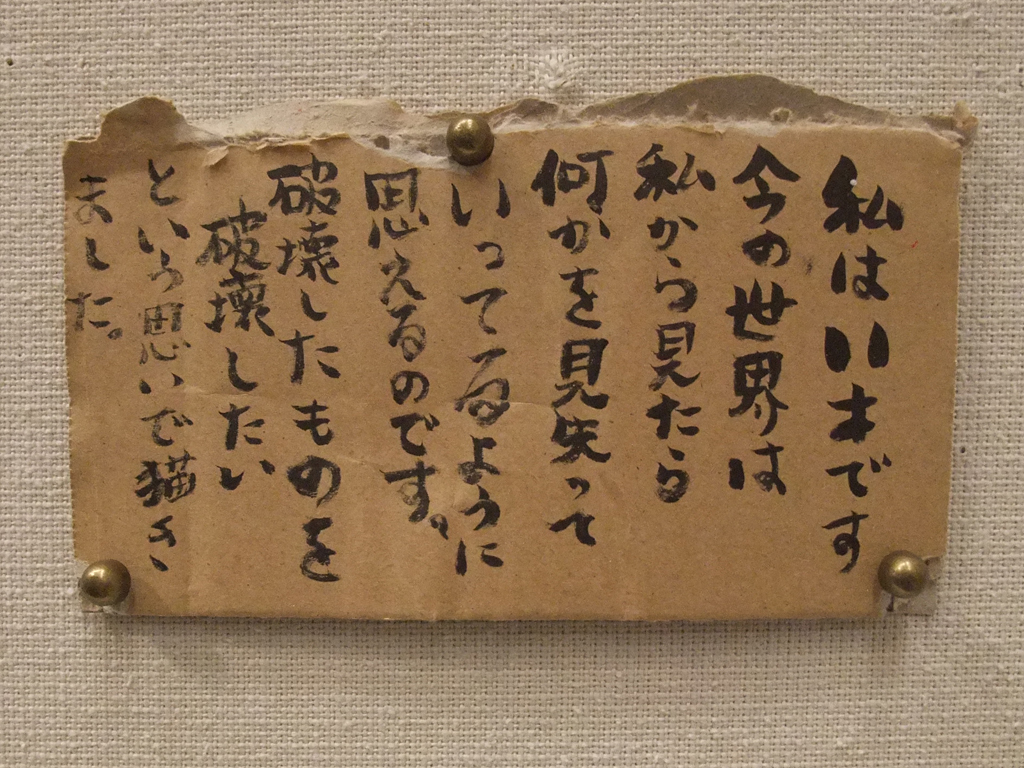 私は11才です
今の世界は
私から見たら
何かを見失って
いってるように
思えるのです。
破壊したものを
破壊したい
という思いで猫き
ました。